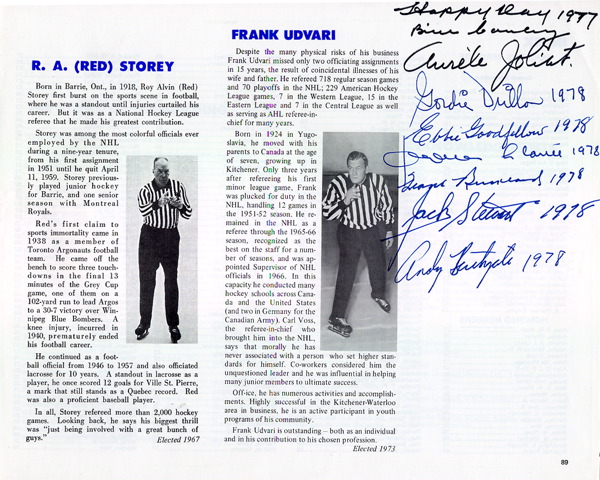 R. A. (RED) STOREY
Born in Barrie, Ont., in 1918, Roy Alvin (Red)
Storey first burst on the sports scene in football,
where he was a standout until injuries curtailed his
career. But it was as a National Hockey League
referee that he made his greatest contribution.
Storey was among the most colorful officials ever
employed by the NHL
during a nine-year tenure,
from his first assignment
in 1951 until he quit April
11, 1959. Storey previous-
ly played junior hockey
for Barrie, and one senior
season with Montreal
Royals.
Red's first claim to
sports immortality came in
1938 as a member of
Toronto Argonauts football
team. He came off the
bench to score three touch-
downs in the final 13
minutes of the Grey Cup
game, one of them on a
102-yard run to lead Argos
to a 30-7 victory over Win-
nipeg Blue Bombers. A
knee injury, incurred in
1940, prematurely ended
his football career.
He continued as a foot-
ball official from 1946 to 1957 and also officiated
lacrosse for 10 years. A standout in lacrosse as a
player, he once scored 12 goals for Ville St. Pierre,
a mark that still stands as a Quebec record. Red
was also a proficient baseball player.
In all, Storey refereed more than 2,000 hockey
games. Looking back, he says his biggest thrill
was "just being involved with a great bunch of
guys."
Elected 1967
FRANK UDVARI
Despite the many physical risks of his business
Frank Udvari missed only two officiating assignments
in 15 years, the result of coincidental illnesses of his
wife and father. He refereed 718 regular season games
and 70 playoffs in the NHL; 229 American Hockey
League games, 7 in the Western League, 15 in the
Eastern League and 7 in the Central League as well
as serving as AHL referee-in-
chief for many years.
Born in 1924 in Yugo-
slavia, he moved with his
parents to Canada at the age
of seven, growing up in
Kitchener. Only three years
after refereeing his first
minor league game, Frank
was plucked for duty in the
NHL, handling 12 games in
the 1951-52 season. He re-
mained in the NHL as a
referee through the 1965-66
season, recognized as the
best on the staff for a num-
ber of seasons, and was ap-
pointed Supervisor of NHL
officials in 1966. In this
capacity he conducted many
hockey schools across Cana-
da and the United States
(and two in Germany for the
Canadian Army). Carl Voss,
the referee-in-chief who
brought him into the NHL,
says that morally he has
never associated with a person who set higher stan-
dards for himself. Co-workers considered him the
unquestioned leader and he was influential in helping
many junior members to ultimate success.
Off-ice, he has numerous activities and accomplish-
ments. Highly successful in the Kitchener-Waterloo
area in business, he is an active participant in youth
programs of his community.
Frank Udvari is outstanding – both as an individual
and in his contribution to his chosen profession.
Elected 1973
Happy Day 1977
Aurèle Joliat.
Gordie Drillon 1978
Ebbie Goodfellow 1978
1978
1978
Jack Stewart 1978
Andy 1978
89